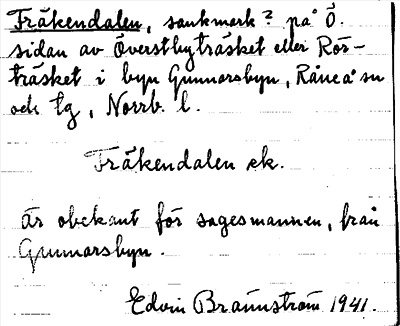 Fräkendalen, sankmark? på Ö.
sidan av Överstbyträsket eller Rör-
träsket i byn Gunnarsbyn, Råneå sn
och tg, Norrb. l.
Fräkendalen ek.
är obekant för sagesmannen, från
Gunnarsbyn.
Edvin Brännström 1941.